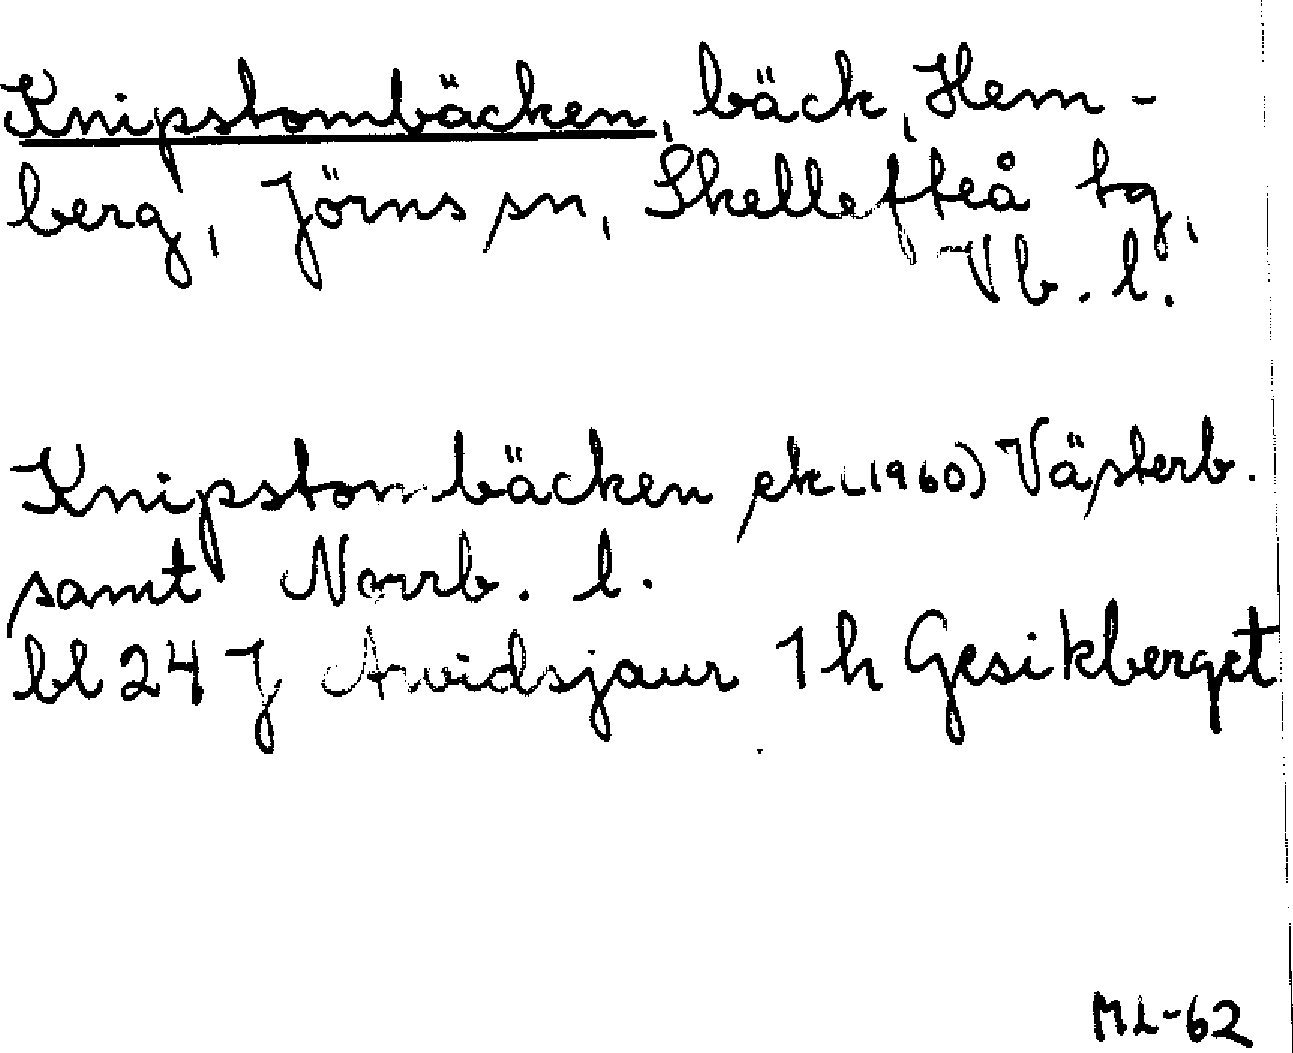 Knipstombäcken, bäck, Hem-
berg, Jörns sn, Skellefteå tg,
Vb. l.
Knipstombäcken ek (1960) Västerb.
samt Norrb. l.
bl 24 J Arvidsjaur 1h Gesikberget
ML-62